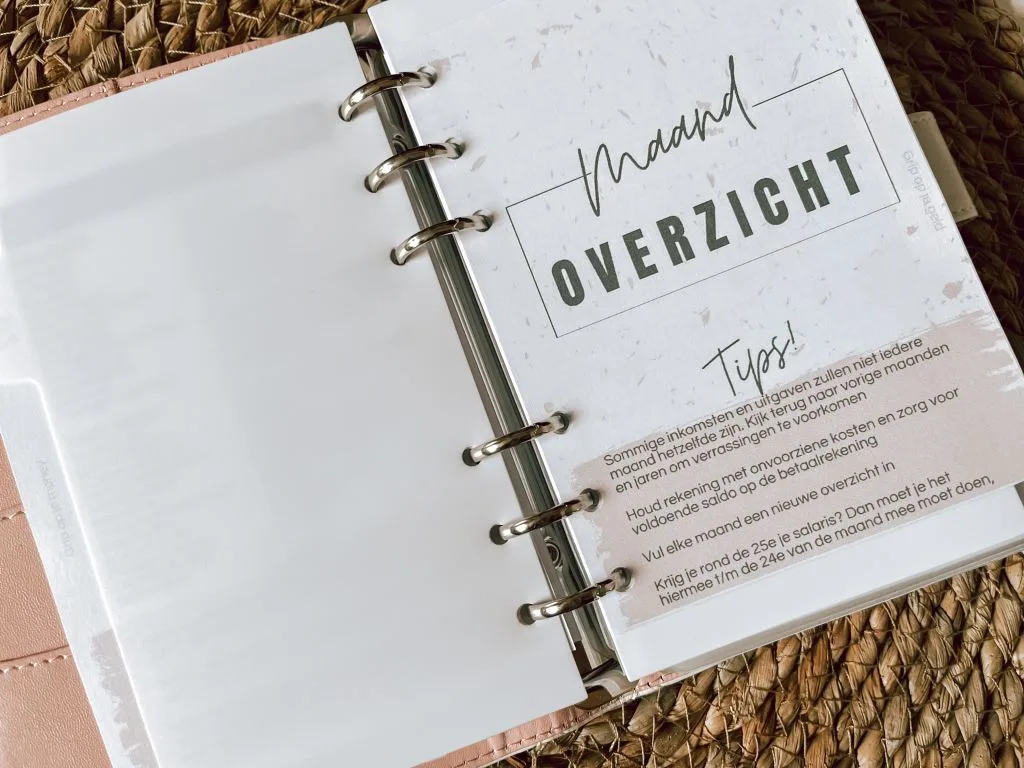 Maand
OVERZICHT
Tips!
Sommige inkomsten en uitgaven zullen niet iedere
maand hetzelfde zijn. Kijk terug naar vorige maanden
en jaren om verrassingen te voorkomen
Houd rekening met onvoorziene kosten en zorg voor
voldoende saldo op de betaalrekening
Vul elke maand een nieuwe overzicht in
Krijg je rond de 25e je salaris? Dan moet je het
hiermee t/m de 24e van de maand mee moet doen,
Grip op je geld